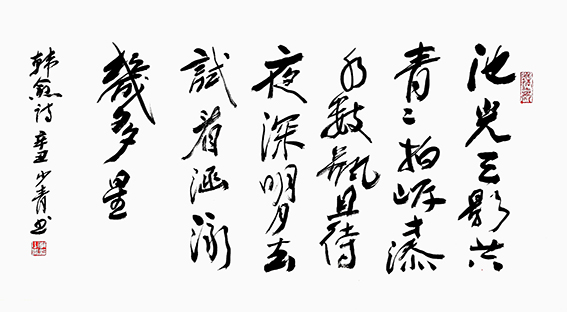 池光天影共
青々拍岸才添
水數瓶且待
夜深明月去
試看涵泳
幾多星
韓愈詩 辛丑 少青书